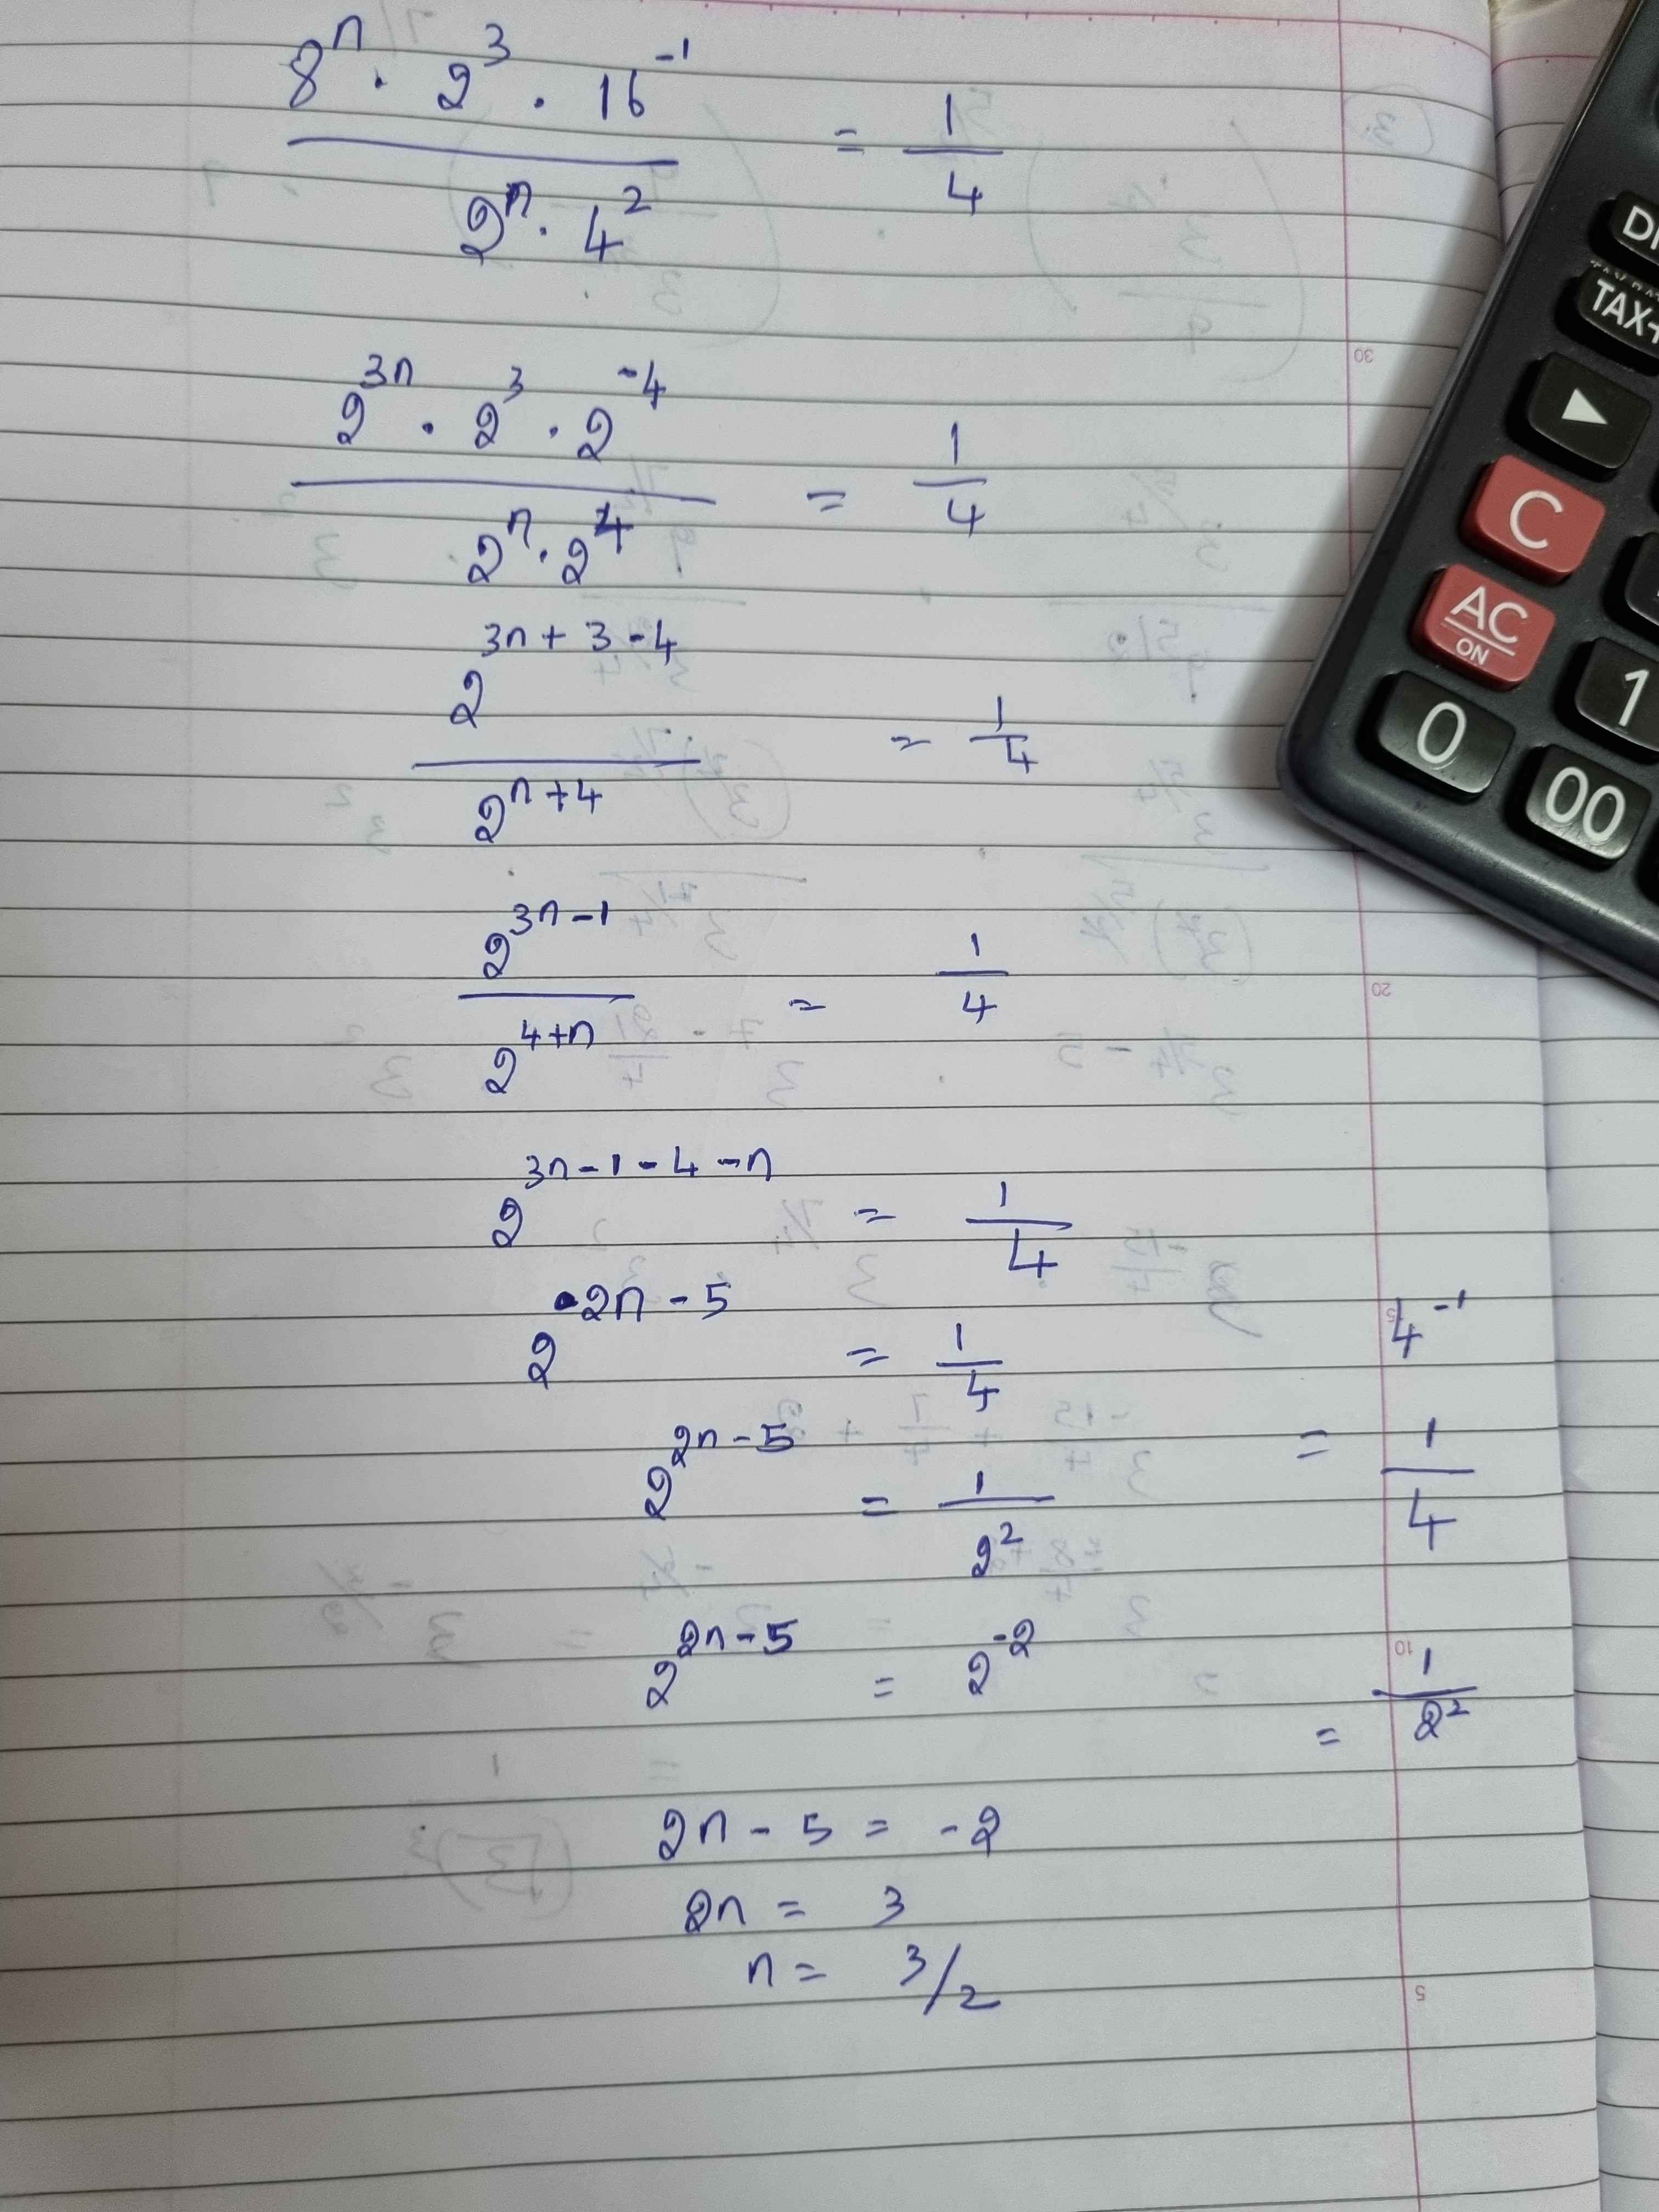 8ⁿ · 2³ · 16⁻¹ / 2ⁿ · 4² = 1/4
2³ⁿ · 2³ · 2⁻⁴ / 2ⁿ · 2⁴ = 1/4
2³ⁿ⁺³⁻⁴ / 2ⁿ⁺⁴ = 1/4
2³ⁿ⁻¹ / 2⁴⁺ⁿ = 1/4
2³ⁿ⁻¹⁻⁴⁻ⁿ = 1/4
2²ⁿ⁻⁵ = 1/4
2²ⁿ⁻⁵ = 1/2²
2²ⁿ⁻⁵ = 2⁻²
2n - 5 = -2
2n = 3
n = 3/2
4⁻¹
= 1/4
= 1/2²
30
20
15
10
5
TAX+
▶
C
AC
ON
0
1
00